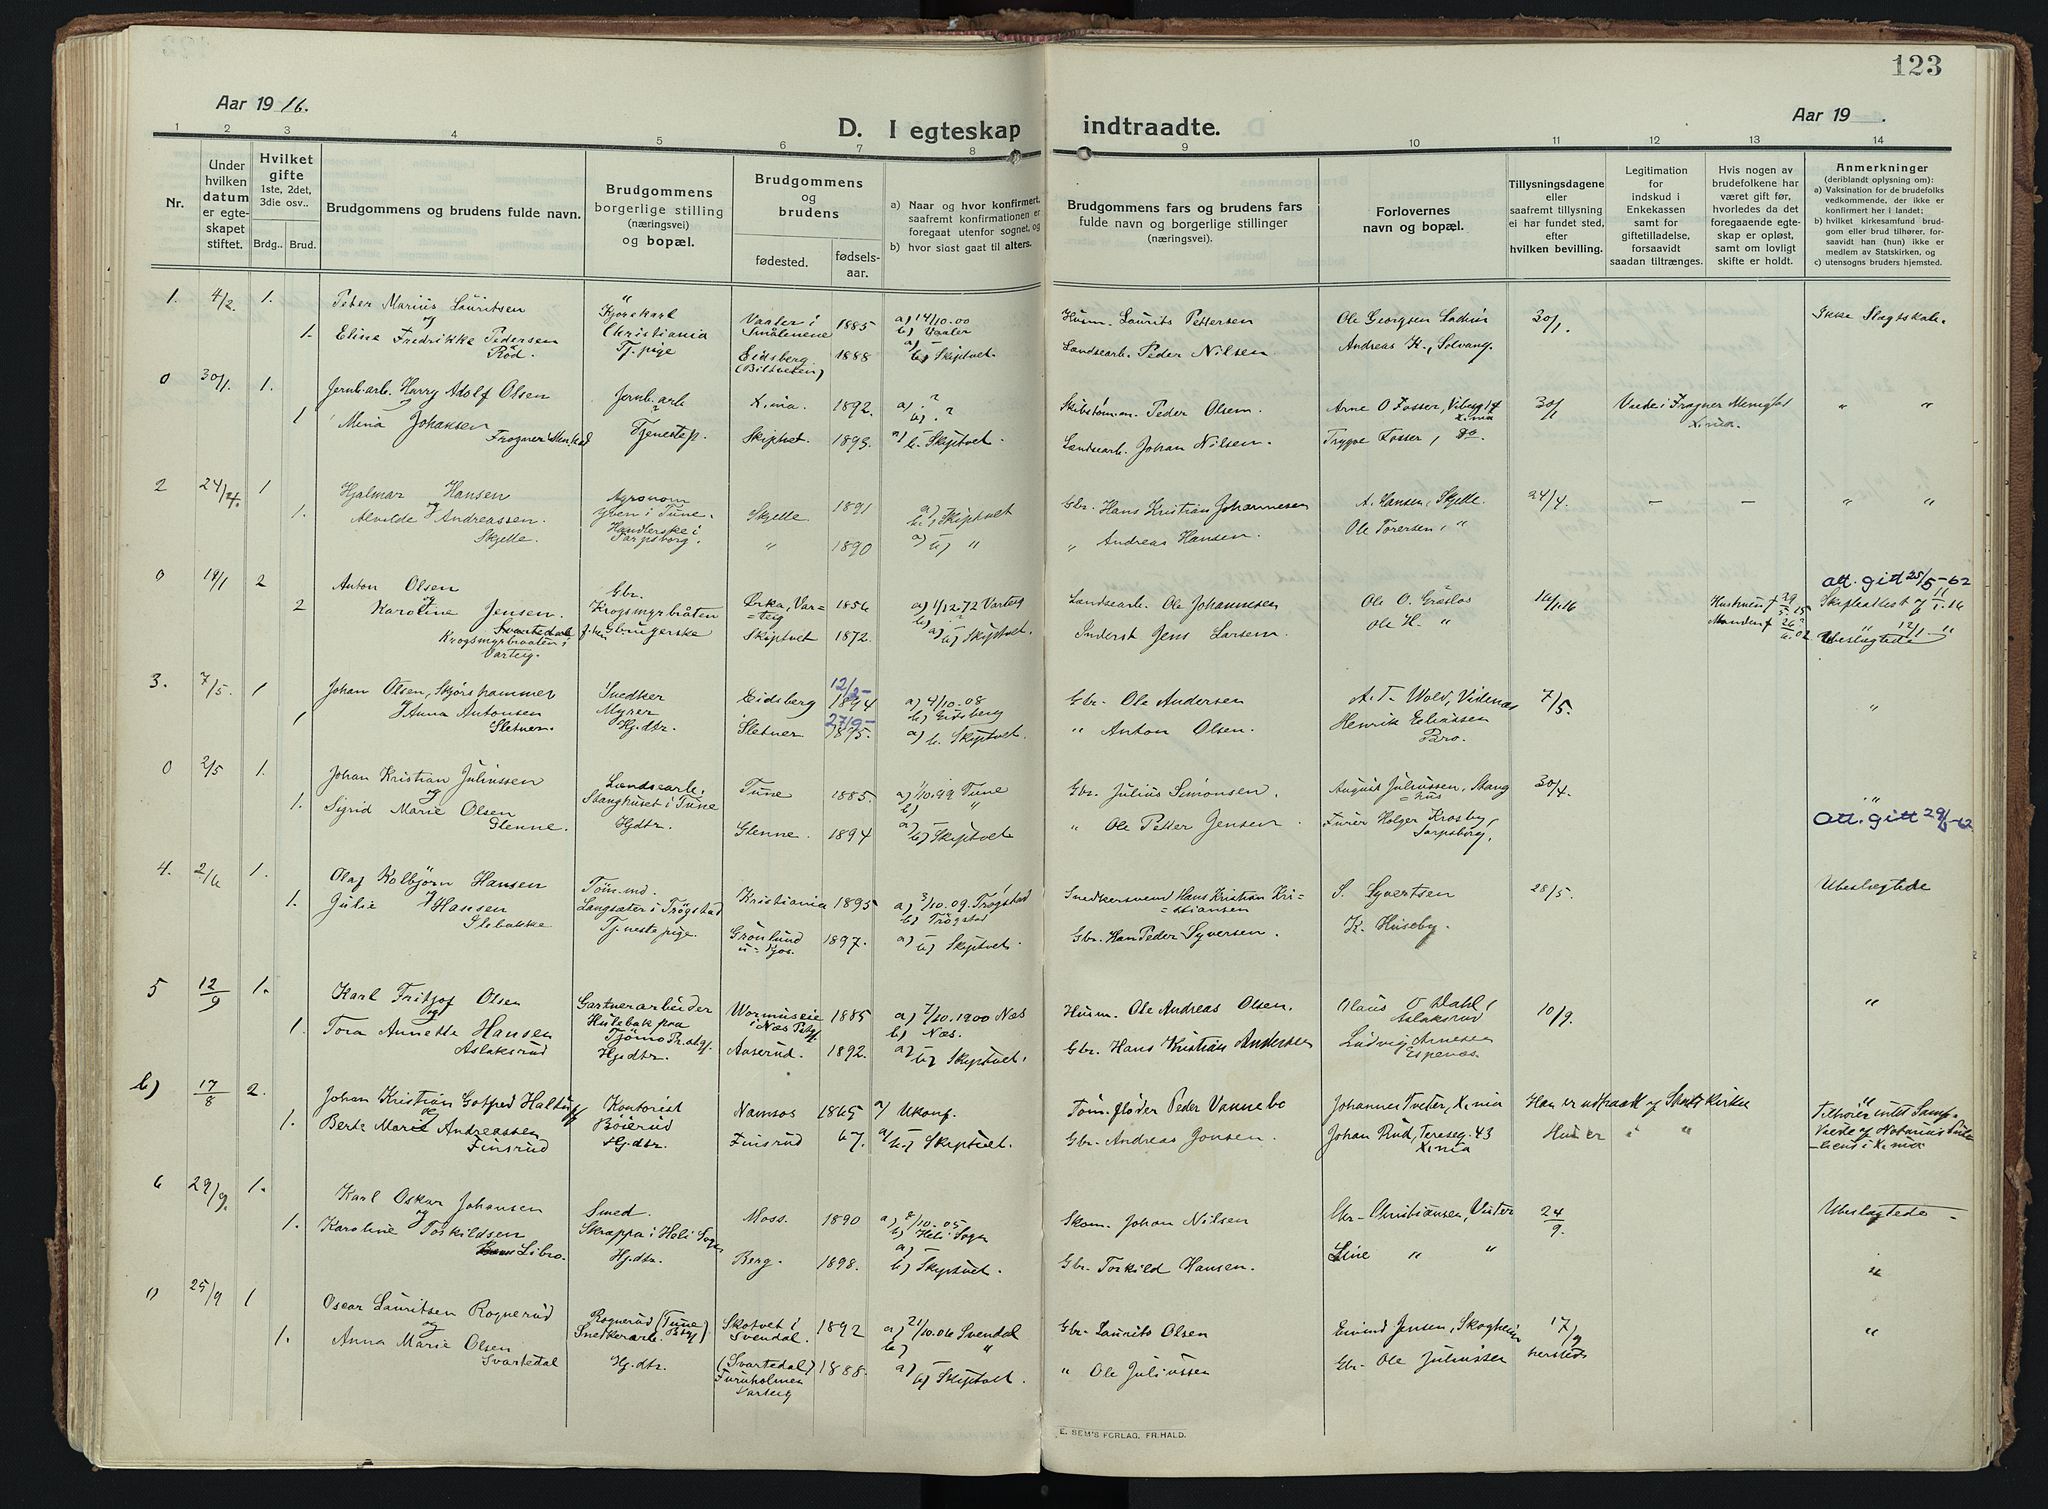 123
Aar 1916.
Aar 19 .
D. I egteskap indtraadte.
1 2 3 4 5 6 7 8 9 10 11 12 13 14
Nr.
Under hvilken datum er egteskapet stiftet.
Hvilket gifte 1ste, 2det, 3die osv..
Brdg.. Brud.
Brudgommens og brudens fulde navn.
Brudgommens borgerlige stilling (næringsvei) og bopæl.
Brudgommens og brudens
fødested.
fødselsaar.
a) Naar og hvor konfirmert, saafremt konfirmationen er foregaat utenfor sognet, og
b) hvor sidst gaat til alters.
Brudgommens fars og brudens fars fulde navn og borgerlige stillinger (næringsvei).
Forlovernes navn og bopæl.
Tillysningsdagene eller saafremt tillysning ei har fundet sted, efter hvilken bevilling.
Legitimation for indskud i Enkekassen samt for giftetilladelse, forsaavidt saadan tiltrænges.
Hvis nogen av brudefolkene har været gift før, hvorledes da det foregaaende egteskap er opløst, samt om lovligt skifte er holdt.
Anmerkninger (deriblandt oplysning om):
a) Vaksination for de brudefolks vedkommende, der ikke er konfirmert her i landet;
b) hvilket kirkesamfund brudgom eller brud tilhører, forsaavidt han (hun) ikke er medlem av Statskirken, og
c) utensogns bruders hjemsted.
1. 4/2 1. Peter Marius Lauritsen Kjørekarl Christiania Vaaler i Smålenene 1885 a) 14/10.00 b) Vaaler Husm. Laurits Pettersen Ole Georgsen 30/1. Ikke Slegtskab.
og
1. Eline Fredrikke Pedersen Rød. Tj. pige Eidsberg (Biltveten) 1888 a) b) Skiptvet Landsearb. Peder Nilsen Andreas K., Solvang.
0 30/1. 1. Jernb.arb. Harry Adolf Olsen Jernb. arb X.nia. 1892. a) ? b) ? Skibstømm. Peder Olsen Arne O Fosser, Vibesgt X.nia 30/1 Viede i Frogner Menighet X.nia. " "
1 Mina Johansen Frogner Menhed Tjenestep. Skiptvet 1893. a) b. Skiptvet. Landsearb. Johan Nilsen. Trygve Fosser, Do.
2 24/4. 1 Hjalmar Hansen Agronom i Tune. Skjelle 1891 a) b) Skiptvet Gbr. Hans Kristian Johannesen A. Hansen, Skjelle. 24/4. — — " "
1. Alvilde Andreassen. Skjelle. Handlerske i Sarpsborg. " 1890 a) b) " " Andreas Hansen. Ole Torersen, "
0 19/1 2 Anton Olsen Gbr. Krogsmyrbråten Varteig 1856 a) 1/12.72 Varteig b) Landsearb. Ole Johannesen Ole O. Gråslos 16/1.16 Att. gitt 25/5-62
og
2 Karoline Jensen. Svartedal Krogsmyrbraaten i Varteig. Gbrugerske Skiptvet 1872. a) b) Skiptvet. Inderst Jens Larsen. Ole H. " Manden Ubeslegtede
3. 7/5. 1 Johan Olsen, Skjørshammer Snedker Myrer Eidsberg 12/2- 1894 a) 4/10.08 b) Eidsberg Gbr. Ole Andersen A. T. Wold, Videnes 7/5. "
1 Anna Antonsen Sletner. Hj.dtr. Sletner 27/9- 1875. a) b. Skiptvet. " Anton Olsen. Henrik Eliassen Bro.
0 2/5 1. Johan Kristian Juliussen Landsearb. Stanghuset i Tune Tune 1885. a) 1/10.99 Tune b) " Gbr. Julius Simonsen. August Juliussen, Stanghus 30/4. "
og
1. Sigrid Marie Olsen Glenne. Hj.dtr. Glenne. 1894 a) b) Skiptvet " Ole Petter Jensen Furer Holger Krosby, Sarpsborg, Att. gitt 29/5-62
4. 2/6 1. Olaf Kolbjørn Hansen Tøm.md. Langsæter i Trøgstad Kristiania 1895 a) 3/10.09. Trøgstad b) Trøgstad Snedkersvend Hans Kristian Kristiansen S. Syvertsen 28/5. Ubeslegtede
1. Julie Hansen Slebakke Tj.nestepige. Grønlund u. Kjos. 1897. a) b) Skiptvet. Gbr. Han Peder Syversen. K. Huseby.
5 12/9 1. Karl Fritjof Olsen Gartnerarbeider Hulebak paa Tjømø Pr.stgj. Wormuseie i Næs Pstgj. 1885 a) 2/10.1900 Næs b) Næs. Husm. Ole Andreas Olsen. Olaus O Dahl, Aslaksrud 10/9. "
og
1. Tora Annette Hansen Aslaksrud Hj.dtr. Aaserud. 1892. a) b) Skiptvet. Gbr. Hans Kristian Andersen Ludvig Arnesen Espenæs.
b) 17/8 2. Johan Kristian Gotfred Haltuff Kontorist Bøierud Namsos 1865 a) Ukonf. Tøm. fløder Peder Vannebo Johannes Tveter, X.nia Han er udtraadt af Statskirke "
og
1. Berte Marie Andreassen Finsrud Hj.dtr. Finsrud 67. a) b) Skiptvet. Gbr. Andreas Jonsen. Johan Rud, Tereseg. 43 X.nia Hun er i " Tilhører intet Samf. Viede af Notarius Publicus i X.nia
6 29/9. 1. Karl Oskar Johansen Smed. Skrappa i Heli Sogn Moss. 1890 a) 8/10.05 b) Heli Sogn Skom. Johan Nilsen Chr. Christiansen, Vister 24/9. Ubeslegtede
og
1. Karoline Torkildsen Libro. Hj.dtr. Berg. 1898. a) b) Skiptvet. Gbr. Torkild Hansen. Line " " "
0 25/9 1 Oscar Lauritsen Rognerud Rognerud (Tune Pstgj) Snekkerarb. Skotvet i Svendal. 1892 a) 21/10.06 Svendal b) " Gbr. Laurits Olsen Eivind Jensen, Skogheim 17/9 "
og
1. Anna Marie Olsen Svartedal Hj.dtr. (Svartedal) Furuholmen Varteig 1888. a) b) Skiptvet. " Ole Juliussen Gbr. Ole Juliussen hersteds
E. SEM'S FORLAG. FR.HALD.